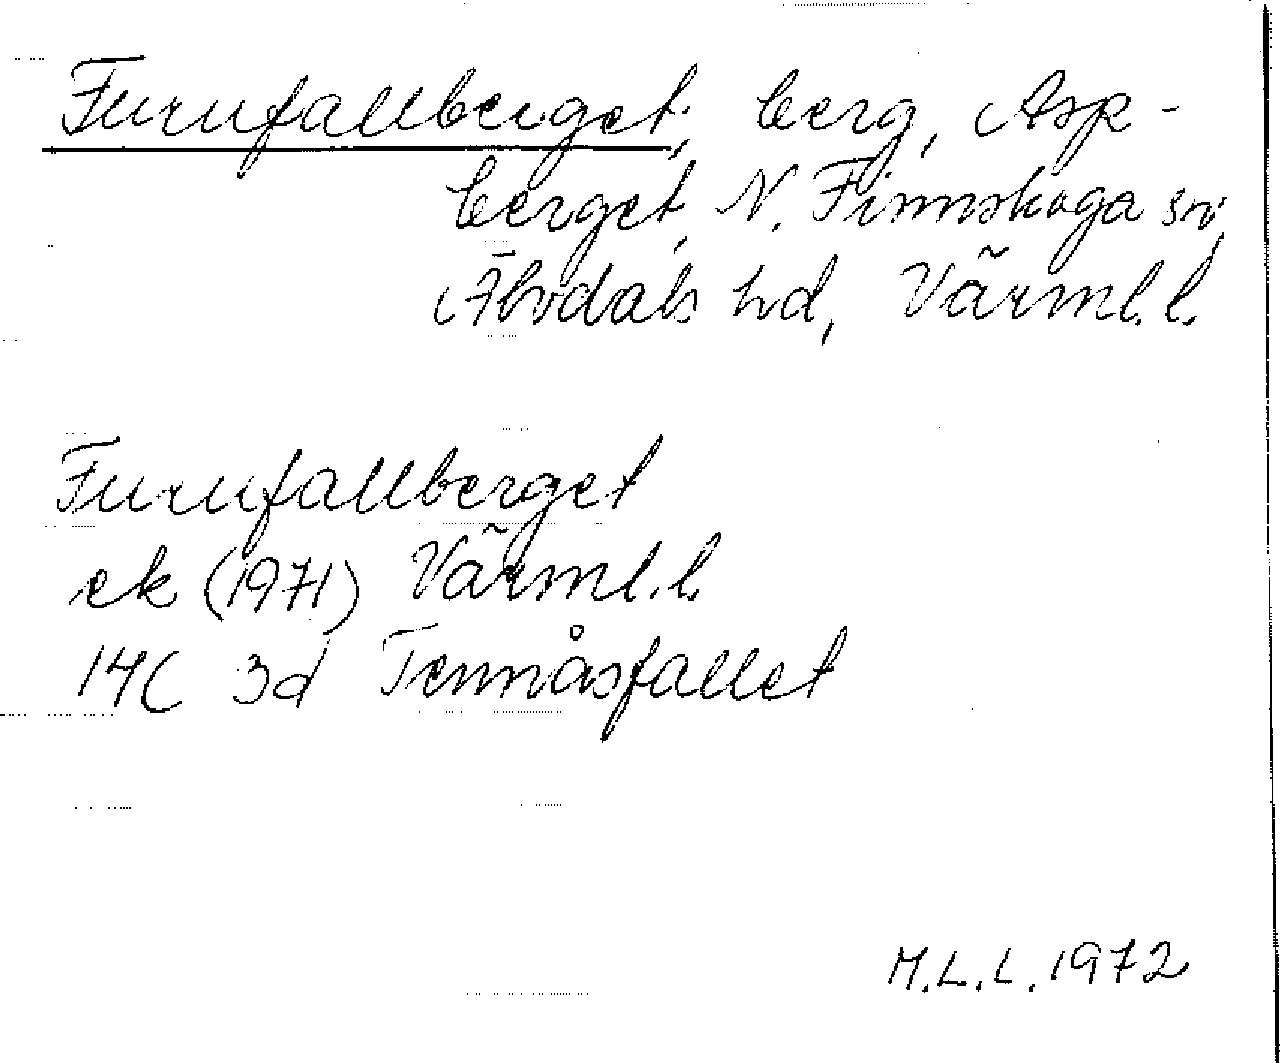 Furufallberget, berg, Asp-
berget, N. Finnskoga sn,
Älvdals hd, Värml.l.
Furufallberget
ek (1971) Värml.l.
14C 3d Tennåsfallet
M.L.L. 1972